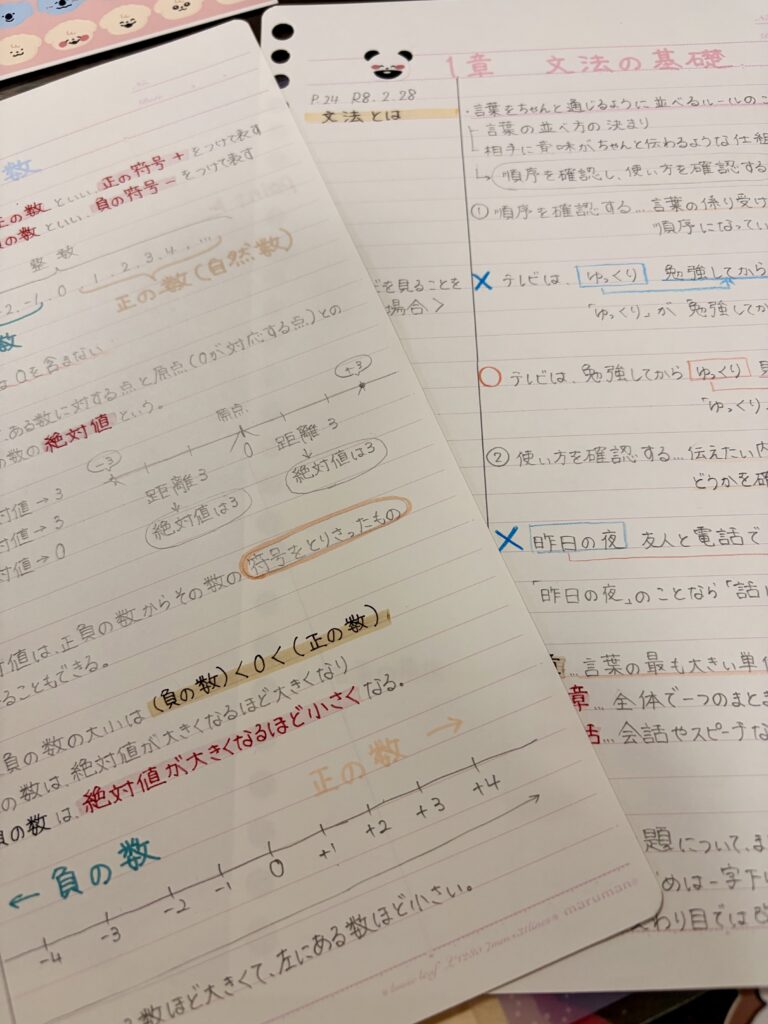 数
正の数 といい、正の符号+をつけて表す
負の数 といい、負の符号-をつけて表す
整数
-2, -1, 0 1, 2, 3, 4, ...
正の数(自然数)
数
は0を含まない
ある数に対する点と原点(0が対応する点)との
の数の絶対値という。
-3
原点
0
+3
距離3
距離3
絶対値は3
絶対値は3
対値→3
対値→3
対値→0
対値は、正負の数からその数の符号をとりさったもの
ることもできる。
負の数の大小は(負の数)<0<(正の数)
の数は、絶対値が大きくなるほど大きくなり
負の数は、絶対値が大きくなるほど小さくなる。
正の数→
←負の数
-4 -3 -2 -1 0 +1 +2 +3 +4
数ほど大きくて、左にある数ほど小さい。
maruman
1章 文法の基礎
P.24 R8.2.28
文法とは
・言葉をちゃんと通じるように並べるルールのこ
言葉の並べ方の決まり
相手に意味がちゃんと伝わるような仕組
順序を確認し、使い方を確認する
①順序を確認する…言葉の係り受け
順序になってい
を見ることを
場合>
× テレビは、ゆっくり 勉強してから
「ゆっくり」が 勉強してか
○ テレビは、勉強してから ゆっくり 見
「ゆっくり」
②使い方を確認する…伝えたい内
どうかを確
× 昨日の夜 友人と電話で
「昨日の夜」のことなら「話し
…言葉の最も大きい単位
章…全体で一つのまとま
話…会話やスピーチな
題について、ま
めは一字下げ
わり目では改